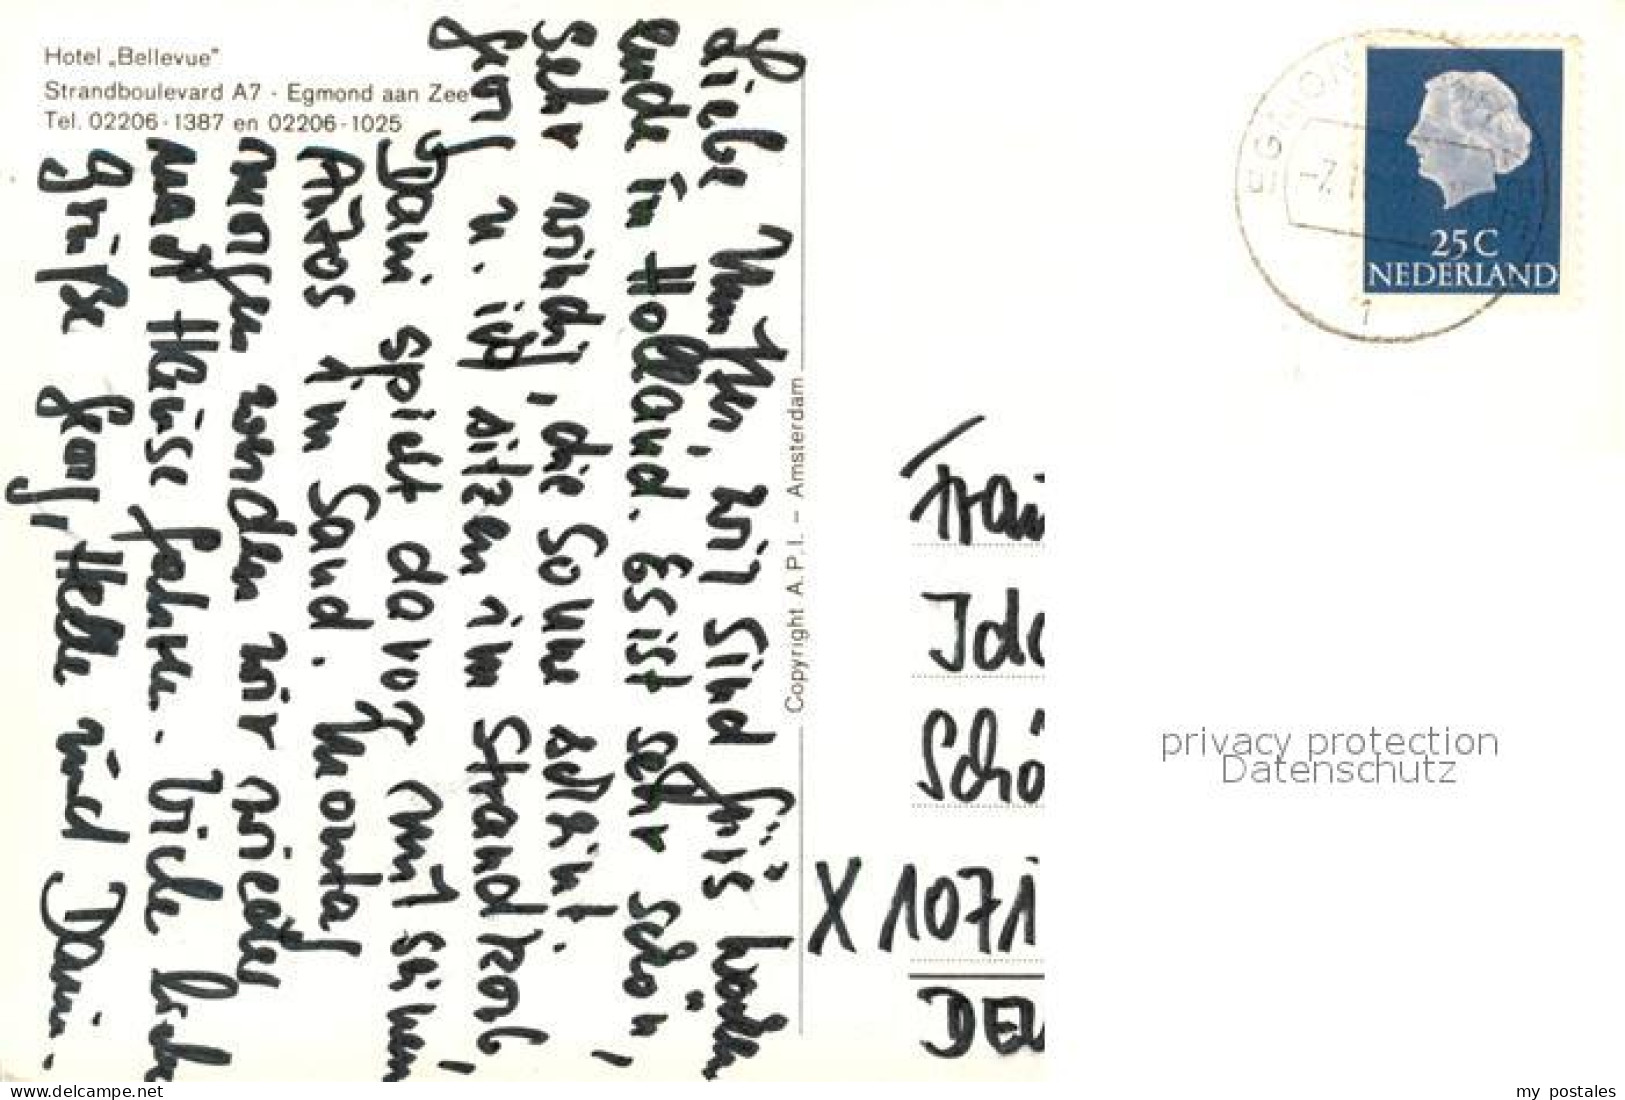 Hotel „Bellevue"
Strandboulevard A7 - Egmond aan Zee
Tel. 02206-1387 en 02206-1025
Liebe wir sind fürs Wochen
ende in Holland. Es ist sehr schön,
sehr windig, die Sonne scheint.
Georg u. ich sitzen im Strandkorb,
Dani spielt davor mit seinen
Autos im Sand. Montag
morgen werden wir wieder
nach Hause fahren. Viele liebe
Grüße Georg, Helle und Dani.
Copyright A.P.I. - Amsterdam
EGMON
-7.
1
25 C
NEDERLAND
Frau
Ida
Schö
X 1071
DEU
privacy protection
Datenschutz
my postales